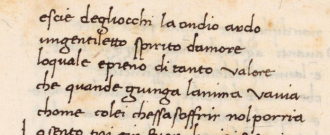 escie degliocchi la ondio ardo
ungentiletto spirito damore
loquale epieno di tanto valore
che quande giunga lanima vavia
chome colei chessasoffrir nolporria